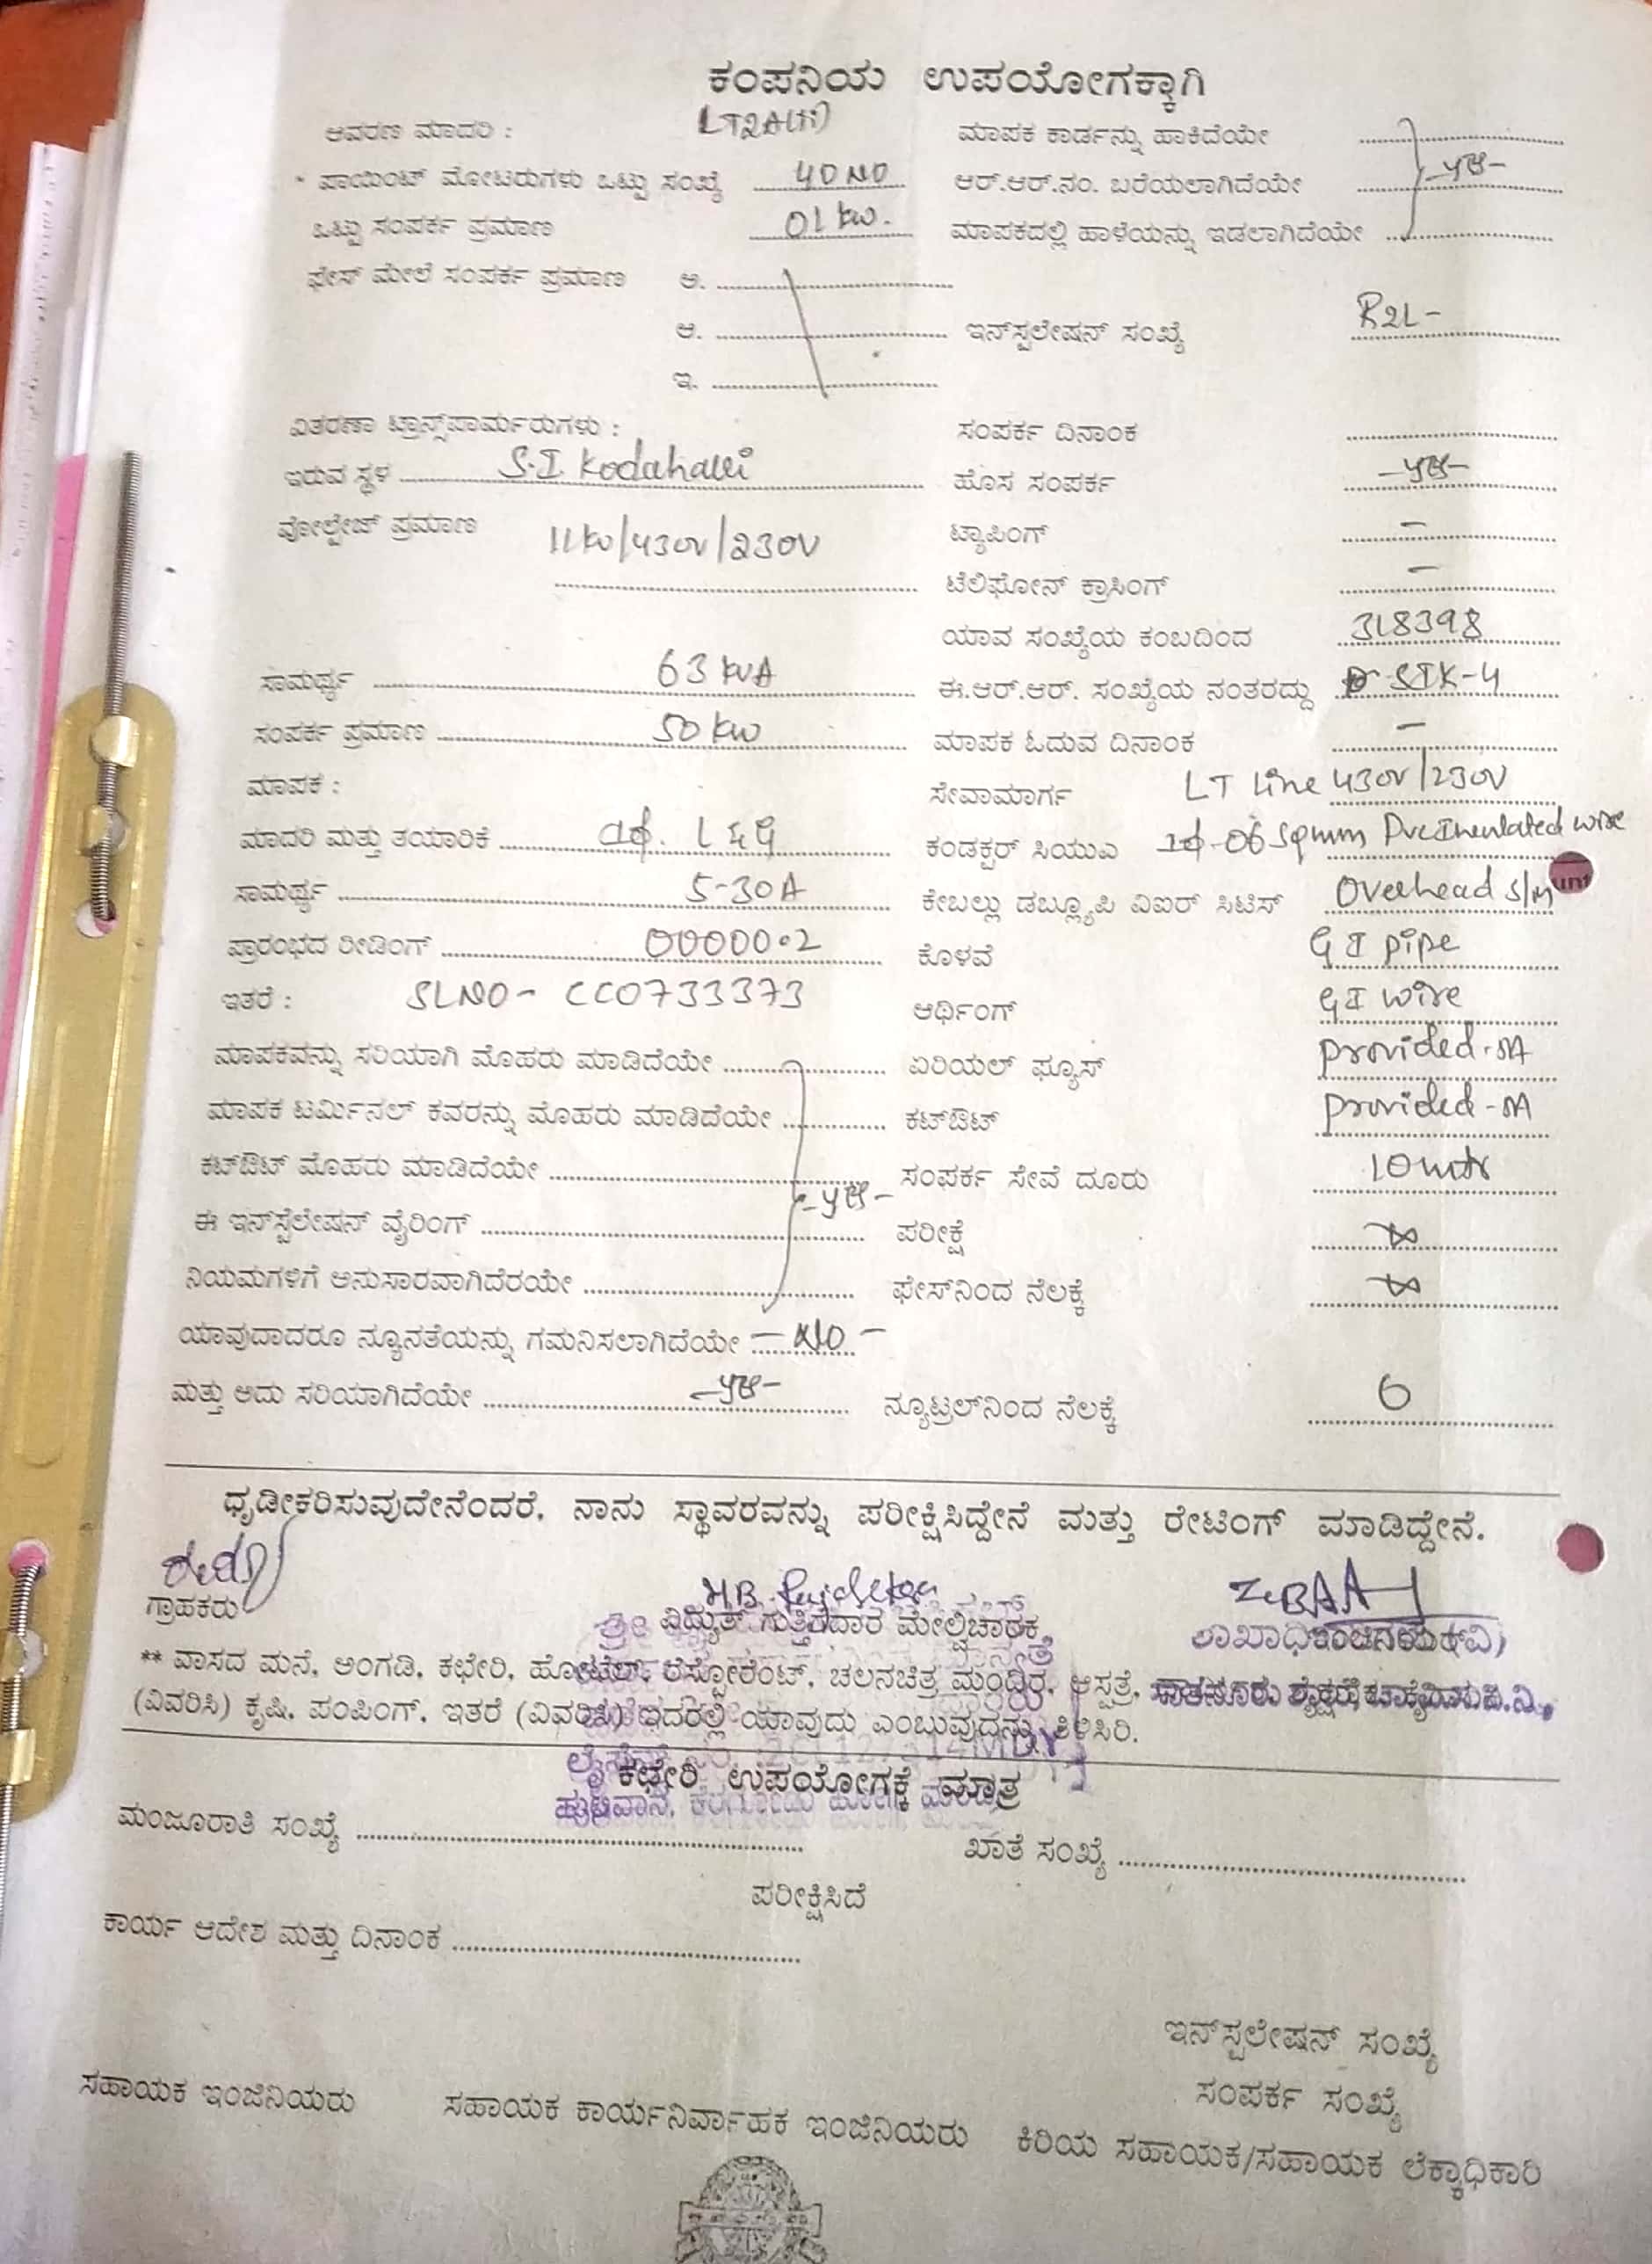 ಕಂಪನಿಯ ಉಪಯೋಗಕ್ಕಾಗಿ
ಆವರಣ ಮಾದರಿ : LT2A(ii) ಮಾಪಕ ಕಾರ್ಡನ್ನು ಹಾಕಿದೆಯೇ
* ಪಾಯಿಂಟ್ ಮೋಟರುಗಳು ಒಟ್ಟು ಸಂಖ್ಯೆ 40 NO ಆರ್.ಆರ್.ನಂ. ಬರೆಯಲಾಗಿದೆಯೇ -yes-
ಒಟ್ಟು ಸಂಪರ್ಕ ಪ್ರಮಾಣ 01 kw. ಮಾಪಕದಲ್ಲಿ ಹಾಳೆಯನ್ನು ಇಡಲಾಗಿದೆಯೇ
ಫೇಸ್ ಮೇಲೆ ಸಂಪರ್ಕ ಪ್ರಮಾಣ ಅ.
ಆ. ಇನ್‌ಸ್ಪಲೇಷನ್ ಸಂಖ್ಯೆ R2L-
ಇ.
ವಿತರಣಾ ಟ್ರಾನ್ಸ್‌ಪಾರ್ಮರುಗಳು : ಸಂಪರ್ಕ ದಿನಾಂಕ
ಇರುವ ಸ್ಥಳ S.I Kodahalli ಹೊಸ ಸಂಪರ್ಕ -yes-
ವೋಲ್ಟೇಜ್ ಪ್ರಮಾಣ 11kv/430v/230V ಟ್ಯಾಪಿಂಗ್ -
ಟೆಲಿಫೋನ್ ಕ್ರಾಸಿಂಗ್ -
ಯಾವ ಸಂಖ್ಯೆಯ ಕಂಬದಿಂದ 318398
ಸಾಮರ್ಥ್ಯ 63 KVA ಈ.ಆರ್.ಆರ್. ಸಂಖ್ಯೆಯ ನಂತರದ್ದು SIK-4
ಸಂಪರ್ಕ ಪ್ರಮಾಣ 50 kw ಮಾಪಕ ಓದುವ ದಿನಾಂಕ -
ಮಾಪಕ : ಸೇವಾಮಾರ್ಗ LT Line 430v/230v
ಮಾದರಿ ಮತ್ತು ತಯಾರಿಕೆ 1ф. L&G ಕಂಡಕ್ಟರ್ ಸಿಯುಎ 1ф-06 Sqmm Pvc Insulated wire
ಸಾಮರ್ಥ್ಯ 5-30A ಕೇಬಲ್ಲು ಡಬ್ಲ್ಯೂಪಿ ವಿಐರ್ ಸಿಟಿಸ್ Overhead S/M
ಪ್ರಾರಂಭದ ರೀಡಿಂಗ್ 00000.2 ಕೊಳವೆ GI pipe
ಇತರೆ : SLNO- CC0733373 ಆರ್ಥಿಂಗ್ GI wire
ಮಾಪಕವನ್ನು ಸರಿಯಾಗಿ ಮೊಹರು ಮಾಡಿದೆಯೇ ಏರಿಯಲ್ ಫ್ಯೂಸ್ provided-5A
ಮಾಪಕ ಟರ್ಮಿನಲ್ ಕವರನ್ನು ಮೊಹರು ಮಾಡಿದೆಯೇ ಕಟ್‌ಔಟ್ provided-5A
ಕಟ್‌ಔಟ್ ಮೊಹರು ಮಾಡಿದೆಯೇ -yes- ಸಂಪರ್ಕ ಸೇವೆ ದೂರು 10 mtr
ಈ ಇನ್‌ಸ್ಟೆಲೇಷನ್ ವೈರಿಂಗ್ ಪರೀಕ್ಷೆ ∞
ನಿಯಮಗಳಿಗೆ ಅನುಸಾರವಾಗಿದೆರಯೇ ಫೇಸ್‌ನಿಂದ ನೆಲಕ್ಕೆ ∞
ಯಾವುದಾದರೂ ನ್ಯೂನತೆಯನ್ನು ಗಮನಿಸಲಾಗಿದೆಯೇ - NO -
ಮತ್ತು ಅದು ಸರಿಯಾಗಿದೆಯೇ -yes- ನ್ಯೂಟ್ರಲ್‌ನಿಂದ ನೆಲಕ್ಕೆ 0
ಧೃಡೀಕರಿಸುವುದೇನೆಂದರೆ, ನಾನು ಸ್ಥಾವರವನ್ನು ಪರೀಕ್ಷಿಸಿದ್ದೇನೆ ಮತ್ತು ರೇಟಿಂಗ್ ಮಾಡಿದ್ದೇನೆ.
ಗ್ರಾಹಕರು ವಿದ್ಯುತ್ ಗುತ್ತಿಗೆದಾರ ಮೇಲ್ವಿಚಾರಕ
** ವಾಸದ ಮನೆ, ಅಂಗಡಿ, ಕಛೇರಿ, ಹೋಟೆಲ್, ರೆಸ್ಟೋರೆಂಟ್, ಚಲನಚಿತ್ರ ಮಂದಿರ, ಆಸ್ಪತ್ರೆ,
(ವಿವರಿಸಿ) ಕೃಷಿ, ಪಂಪಿಂಗ್, ಇತರೆ (ವಿವರಿಸಿ) ಇದರಲ್ಲಿ ಯಾವುದು ಎಂಬುವುದನ್ನು ತಿಳಿಸಿರಿ.
ಕಛೇರಿ ಉಪಯೋಗಕ್ಕೆ ಮಾತ್ರ
ಮಂಜೂರಾತಿ ಸಂಖ್ಯೆ ಖಾತೆ ಸಂಖ್ಯೆ
ಪರೀಕ್ಷಿಸಿದೆ
ಕಾರ್ಯ ಆದೇಶ ಮತ್ತು ದಿನಾಂಕ
ಇನ್‌ಸ್ಪಲೇಷನ್ ಸಂಖ್ಯೆ
ಸಂಪರ್ಕ ಸಂಖ್ಯೆ
ಸಹಾಯಕ ಇಂಜಿನಿಯರು ಸಹಾಯಕ ಕಾರ್ಯನಿರ್ವಾಹಕ ಇಂಜಿನಿಯರು ಕಿರಿಯ ಸಹಾಯಕ/ಸಹಾಯಕ ಲೆಕ್ಕಾಧಿಕಾರಿ